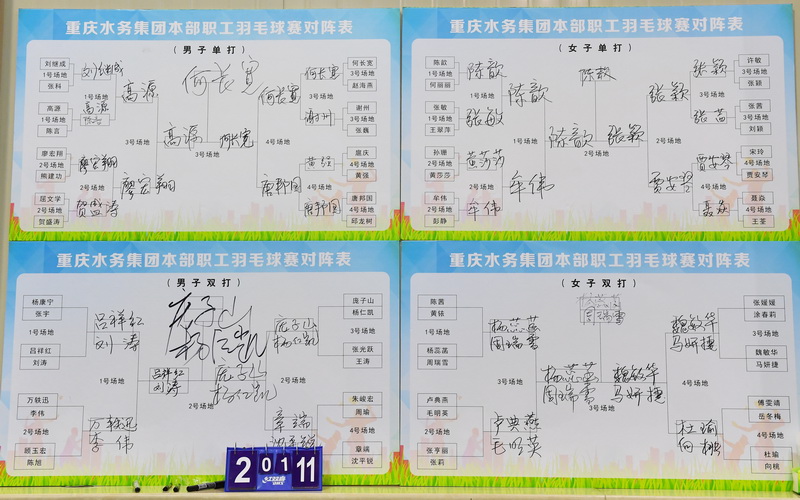 重庆水务集团本部职工羽毛球赛对阵表
(男子单打)
刘继成
1号场地
张科
高源
1号场地
陈言
廖宏翔
2号场地
熊建功
屈文学
2号场地
贺盛涛
刘继成
高源
廖宏翔
贺盛涛
1号场地
2号场地
高源
廖宏翔
3号场地
高源
何长宽
何长宽
3号场地
何长宽
唐邦国
3号场地
4号场地
何长宽
谢州
黄强
唐邦国
何长宽
3号场地
赵海燕
谢州
3号场地
张巍
扈庆
4号场地
黄强
唐邦国
4号场地
邱龙树
重庆水务集团本部职工羽毛球赛对阵表
(女子单打)
陈歆
1号场地
何丽丽
张敏
1号场地
王翠萍
孙珊
2号场地
黄莎莎
牟伟
2号场地
彭静
陈歆
张敏
黄莎莎
牟伟
1号场地
2号场地
陈歆
牟伟
陈歆
陈歆
张颖
2号场地
张颖
贾安琴
3号场地
4号场地
张颖
张茜
贾安琴
聂焱
许敏
3号场地
张颖
张茜
3号场地
刘颖
宋玲
4号场地
贾安琴
聂焱
4号场地
王荃
重庆水务集团本部职工羽毛球赛对阵表
(男子双打)
杨康宁
张宇
1号场地
吕祥红
刘涛
万轶迅
李伟
2号场地
顾玉宏
陈旭
吕祥红
刘涛
万轶迅
李伟
1号场地
吕祥红
刘涛
庞子山
杨仁凯
庞子山
杨仁凯
2号场地
庞子山
杨仁凯
章端
沈平锐
庞子山
杨仁凯
3号场地
张光跃
王涛
朱峻宏
周瑜
4号场地
章端
沈平锐
重庆水务集团本部职工羽毛球赛对阵表
(女子双打)
陈茜
黄铱
1号场地
杨蕊菡
周瑞雪
卢典燕
毛明英
2号场地
张亨丽
张莉
杨蕊菡
周瑞雪
卢典燕
毛明英
1号场地
杨蕊菡
周瑞雪
周瑞雪
魏敏华
马妍捷
3号场地
2号场地
魏敏华
马妍捷
杜瑜
向桃
张媛媛
涂春莉
3号场地
魏敏华
马妍捷
傅雯靖
岳冬梅
4号场地
杜瑜
向桃
2 0 1 11